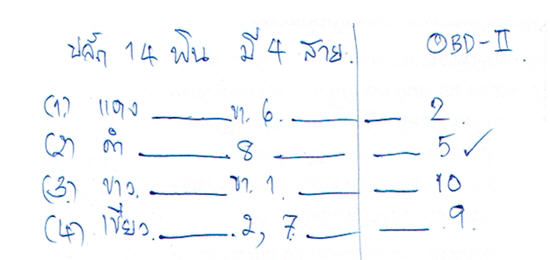 ปลั๊ก 14 พิน มี 4 สาย. OBD-II.
(1) แดง ——— ขา. 6. ——— —— 2
(2) ดำ ——— 8 ——— —— 5 ✓
(3) ขาว. ——— ขา. 1. ——— —— 10
(4) เขียว. ——— 2, 7. ——— —— 9.